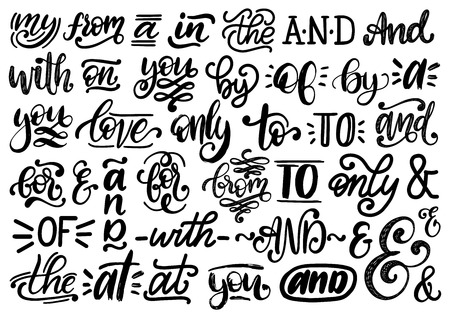 my from a in the A·N·D And
with on you by of by a
you love only to TO and
for & and for from TO only &
OF and -with- ~AND~ & & &
the at at you and &